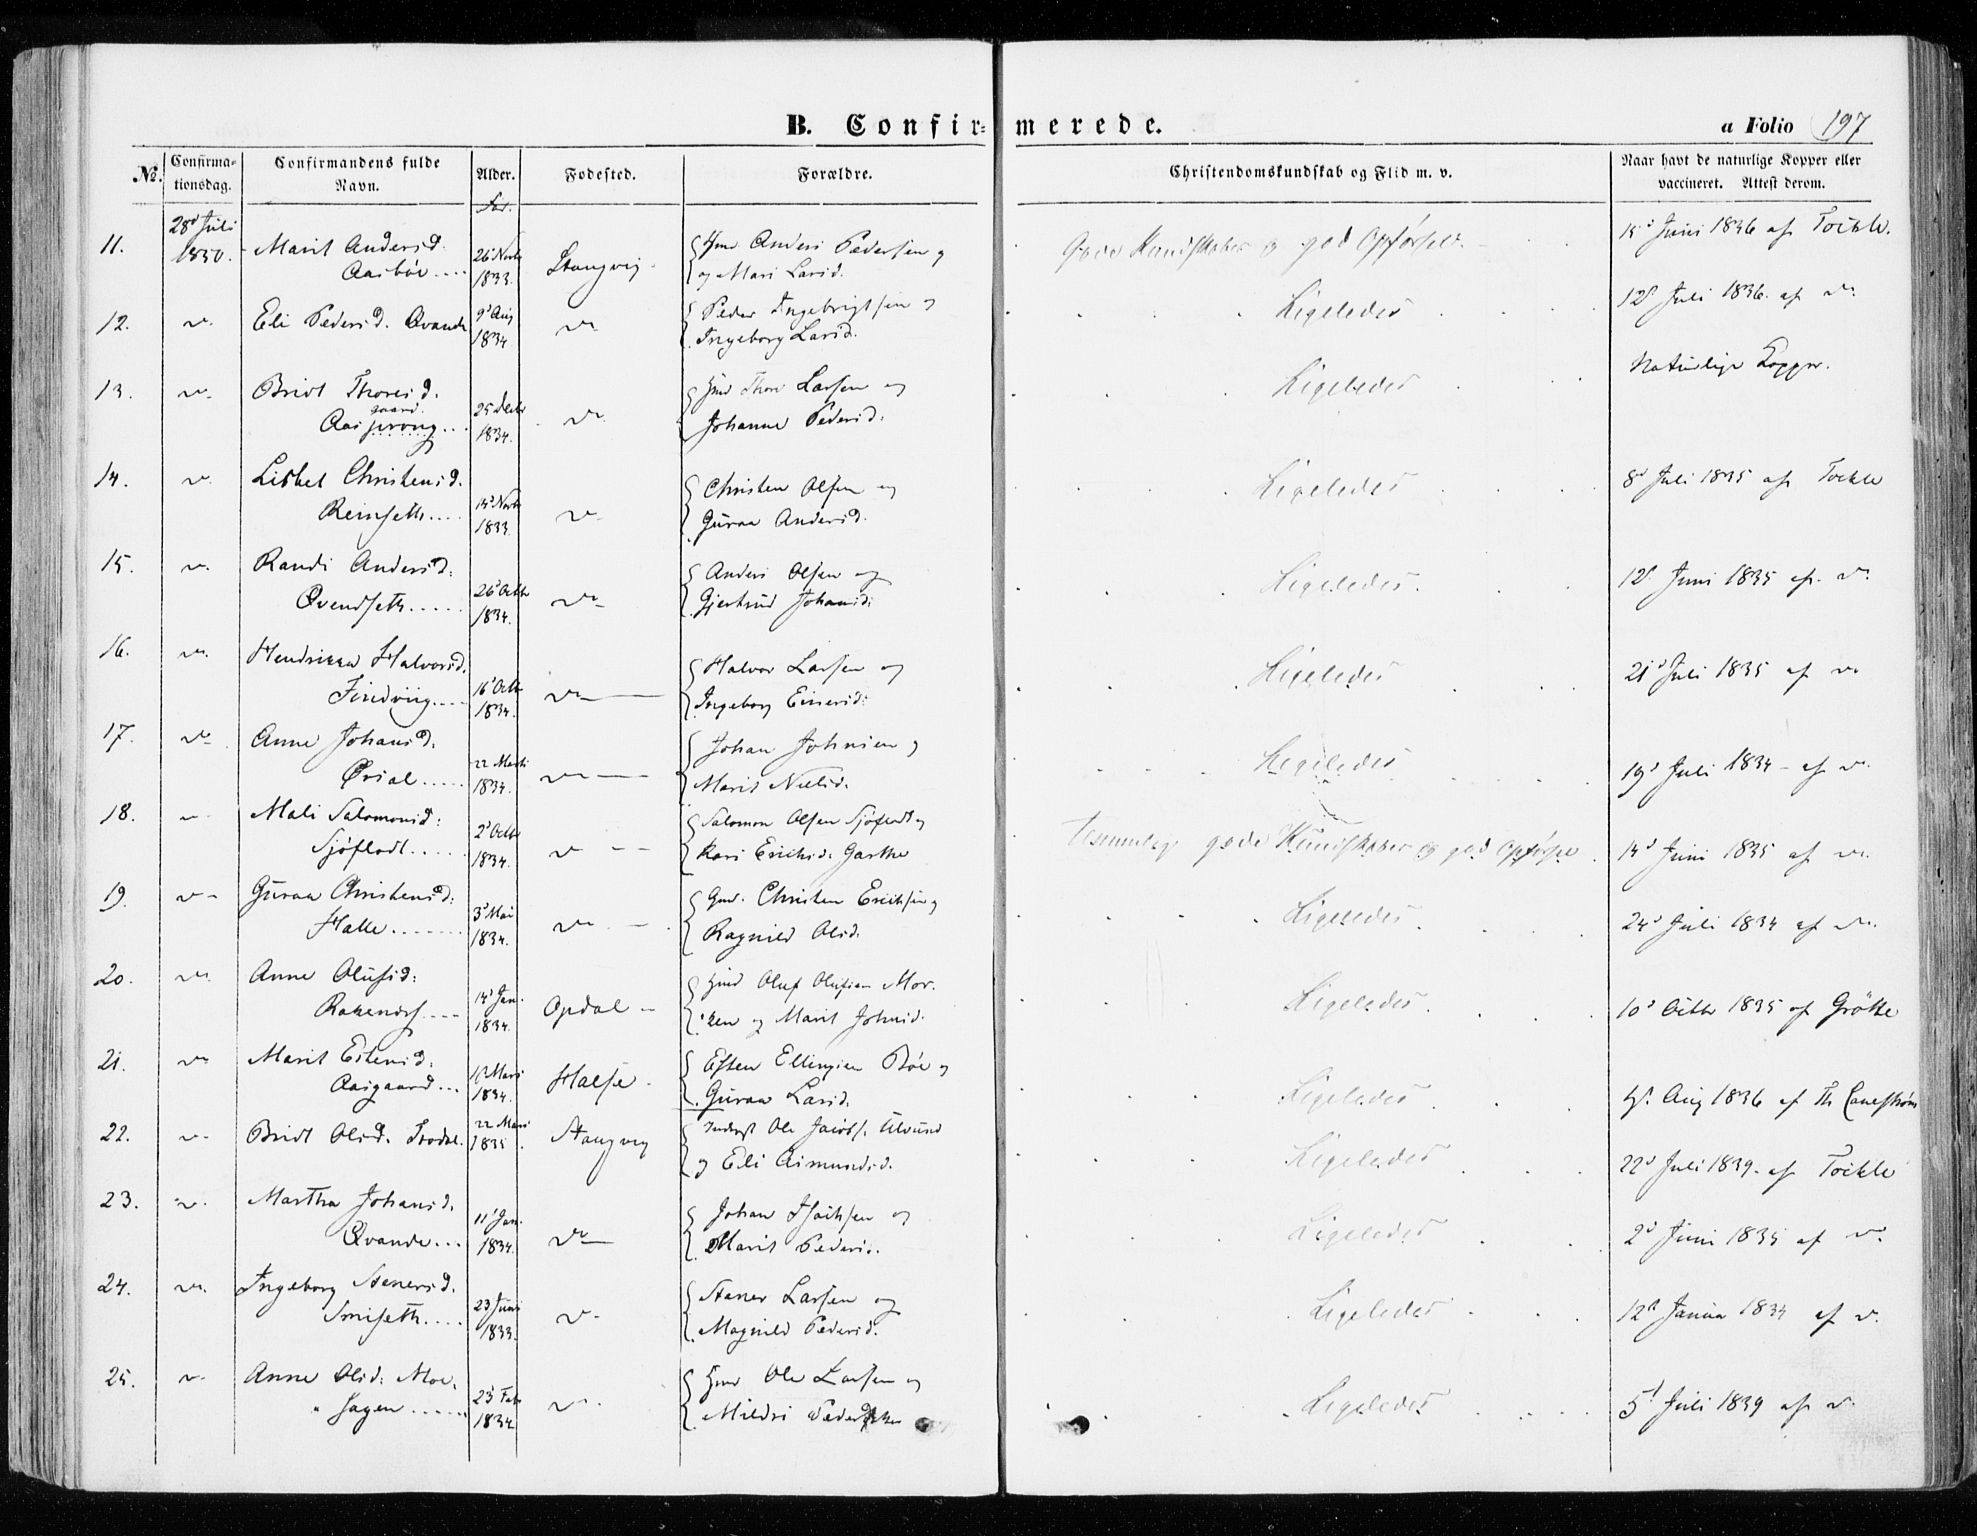 B. Confir=
merede.
a Folio 197
No.
Confirma-
tionsdag.
Confirmandens fulde
Navn.
Alder.
Fødested.
Forældre.
Christendomskundskab og Flid m. v.
Naar havt de naturlige Kopper eller
vaccineret. Attest derom.
11. 28d Juli 1850. Marit Andersd: Aasbøe.... 26 Novb 1833. Stangvig {Gmd Anders Pedersen og og Mari Larsd. Gode Kundskaber og god Opførsel. 15d Juni 1836 af Töckle.
12. v. Eli Pedersd. Qvande 9d Aug 1834 v. {Peder Ingebrigtsen og Ingeborg Larsd. Ligeledes 12d Juli 1836. af v.
13. v. Bridt Thoresd. 25 Decbr 1834. v. {Gmd Thore Larsen og Johanne Pedersd: Ligeledes Naturlige Kopper.
14. v. Lisbet Christensd. Reinseth.... 14d Novb 1833. v. {Christen Olsen og Guraa Andersd. Ligeledes 8d Juli 1835 af Töckle
15. v. Randi Andersd: Qvendseth..... 26d Octb 1834. v. {Anders Olsen og Gjertrud Johansd: Ligeledes 12d Juni 1835 af v.
16. v. Hendrikka Halvorsd. 16d Octb 1834. v. {Halvor Larsen og Ingeborg Einersd: Ligeledes 21d Juli 1835 af v.
17. v. Anne Johansd. Øvial..... 22 Marti 1834. v. {Johan Johnsen og Marit Nielsd. Ligeledes 19d Juli 1834 - af v.
18. v. Mali Salomonsd: Sjøflodt..... 2d Octb 1834. v. {Salomon Olsen Sjøflodt og Kari Erichsd. Garthe Temmelig gode Kundskaber og god Opførsel 14d Juni 1835 af v.
19. v. Guraa Christensd: Halle....... 3d Mai 1834. v. {Gmd. Christen Erichsen og Ragnild Olsd. Ligeledes 24d Juli 1834 af v.
20. v. Anne Olufsd: 14d Jan. 1834. Opdal {Gmd Oluf Olufsen Mor- ken og Marit Johnsd. Ligeledes 10d Octbr 1835 af Gröthe
21. v. Marit Estensd: Aasgaard... Mars 1834. Halse {Esten Ellingsen Böe og Guraa Larsd. Ligeledes Aug 1836 af Th
22. v. Bridt Olsd. 22 Mars 1835. Stangvig {Inderst Ole Jacobs. Ulvund og Eli Asmundsd. Ligeledes 22d Juli 1839. af Töckle
23. v. Martha Johansd. Qvande... 11d Jan. 1834. v. {Johan Isachsen og Marit Pedersd. Ligeledes 2d Juni 1835 af v.
24. v. Ingeborg Stenersd. Smiseth.... 23 Juni 1833. v. {Stener Larsen og Magnild Pedersd. Ligeledes 12d Janua 1834 af v.
25. v. Anne Olsd: Moe- hagen...... 23 Feb 1834 v. {Gmd Ole Larsen og Mildri Ligeledes 5d Juli 1839 af v.